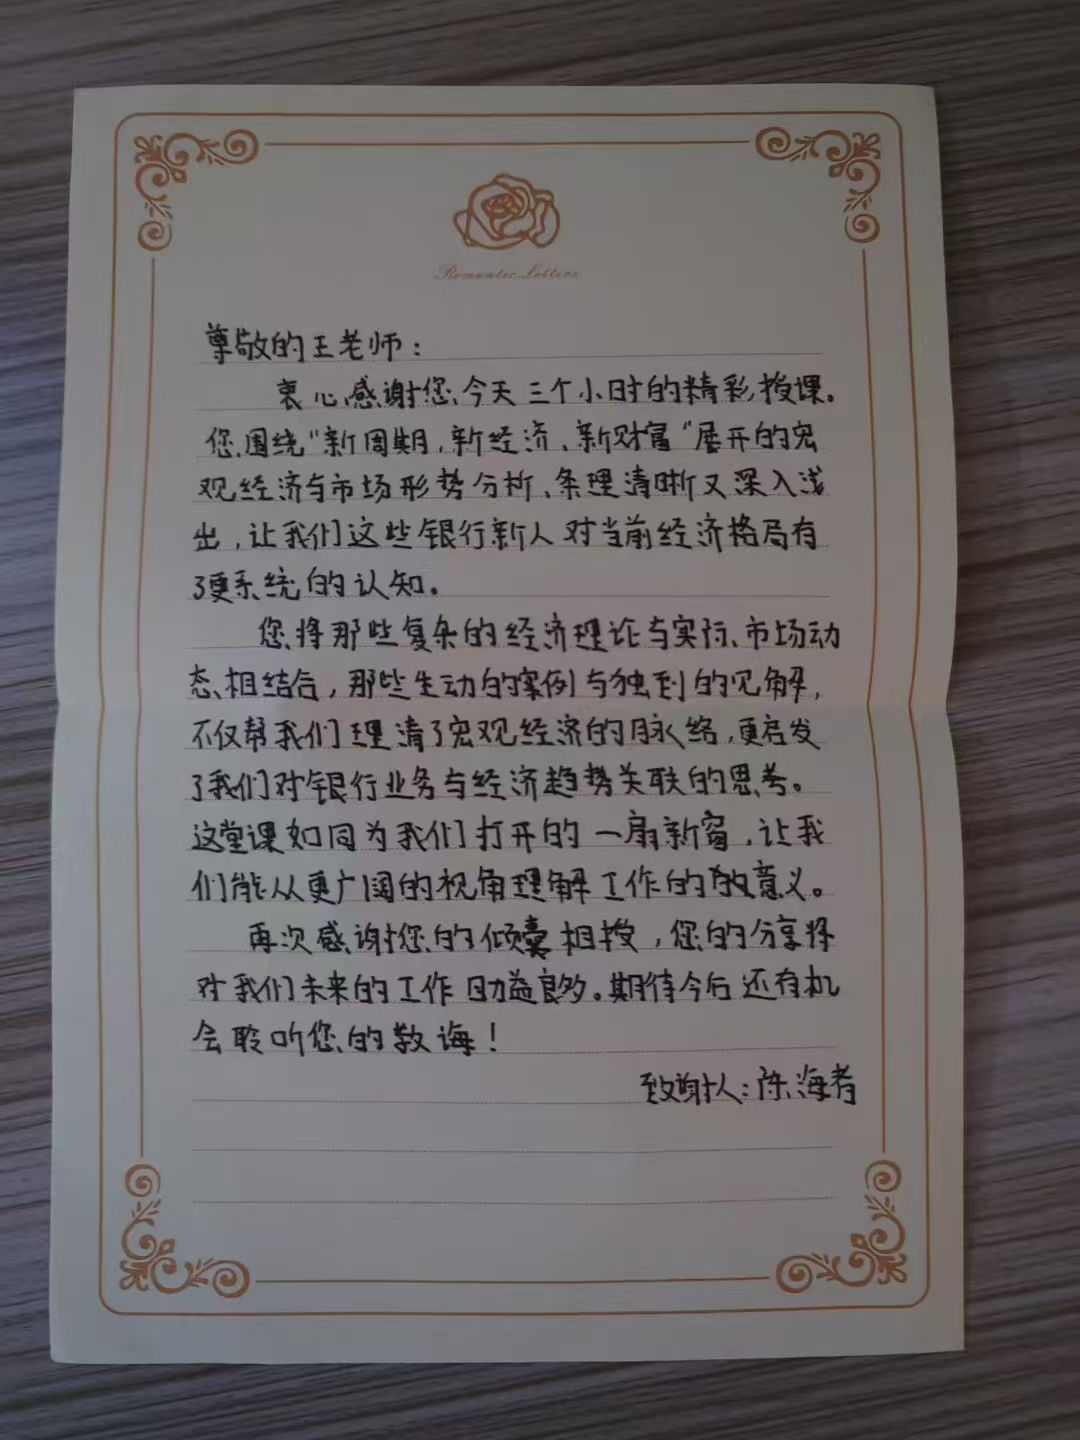 Romantic Letters
尊敬的王老师：
衷心感谢您今天三个小时的精彩授课。
您围绕“新周期,新经济、新财富”展开的宏
观经济与市场形势分析、条理清晰又深入浅
出，让我们这些银行新人对当前经济格局有
了更系统的认知。
您将那些复杂的经济理论与实际市场动
态相结合，那些生动的案例与独到的见解，
不仅帮我们理清了宏观经济的脉络，更启发
了我们对银行业务与经济趋势关联的思考。
这堂课如同为我们打开的一扇新窗，让我
们能从更广阔的视角理解工作的意义。
再次感谢您的倾囊相授，您的分享将
对我们未来的工作助益良多。期待今后还有机
会聆听您的教诲！
致谢人：陈海者